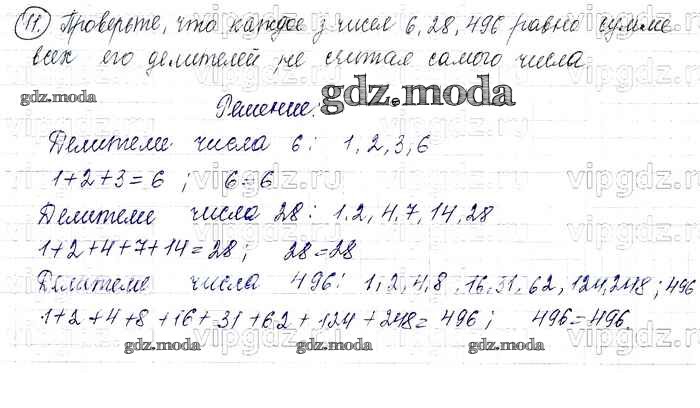 11. Проверьте, что каждое з чисел 6, 28, 496 равно сумме
всех его делителей, не считая самого числа
gdz.moda
Решение:
gdz.moda
Делители числа 6: 1, 2, 3, 6
vipgdz.ru
1+2+3=6 ; 6=6
Делители числа 28: 1.2, 4, 7, 14, 28
1+2+4+7+14=28; 28=28
Делители числа 496: 1, 2, 4, 8, 16, 31, 62, 124, 248; 496
1+2+4+8+16+31+62+124+248= 496; 496=496.
gdz.moda gdz.moda gdz.moda